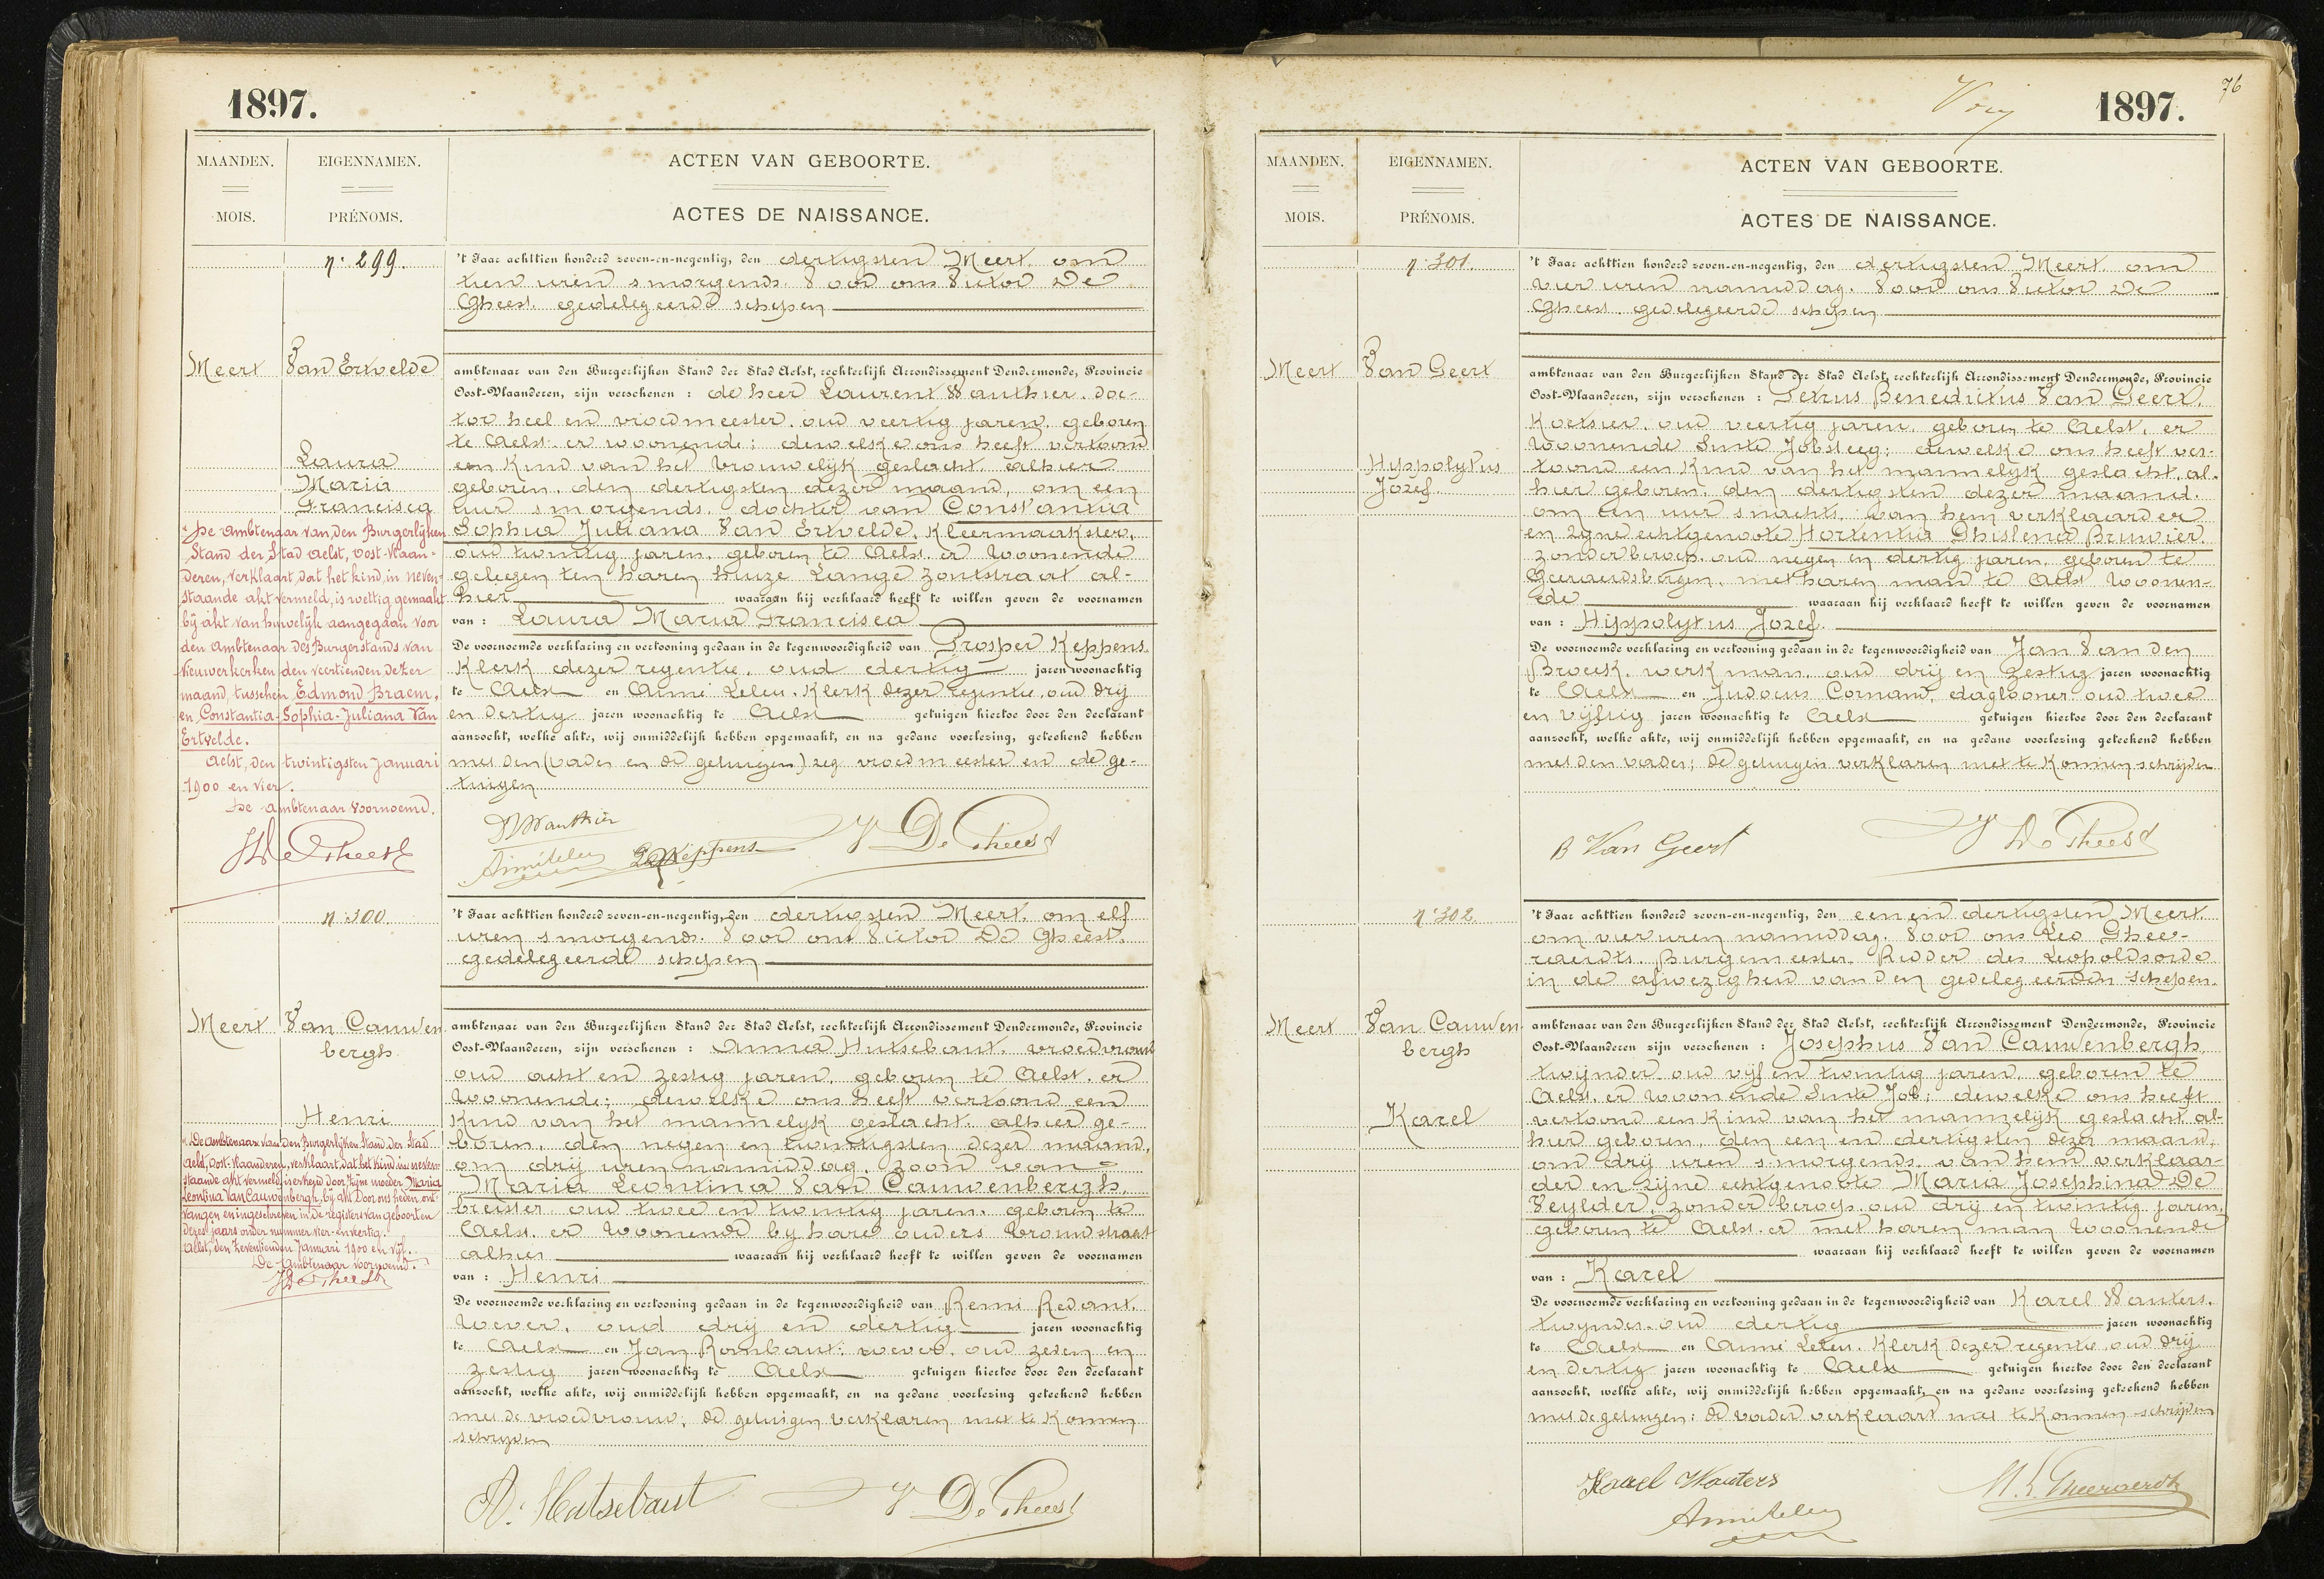 1897.
MAANDEN.
MOIS.
EIGENNAMEN.
PRÉNOMS.
ACTEN VAN GEBOORTE.
ACTES DE NAISSANCE.
n. 299.
Meert
Van Ertvelde
Laura
Maria
Francisca
't Jaar achttien honderd zeven-en-negentig, den dertigsten Meert om
tien uren smorgends. Voor ons Victor De
Gheest. gedelegeerde schepen
ambtenaar van den Burgerlijken Stand der Stad Aelst, rechterlijk Arrondissement Dendermonde, Provincie
Oost-Vlaanderen, zijn verschenen : de heer Laurent Wauthier. doc-
tor heel en vroedmeester. oud veertig jaren. geboren
te Aelst. er woonende; dewelke ons heeft vertoond
een Kind van het vrouwelijk geslacht. alhier
geboren. den dertigsten dezer maand, om een
uur smorgends. dochter van Constantia
Sophia Juliana Van Ertvelde. Kleermaakster,
oud twintig jaren. geboren te Aelst. er woonende
gelegen ten haren huize Lange Zoutstraat al-
hier waaraan hij verklaard heeft te willen geven de voornamen
van : Laura Maria Francisca
De voornoemde verklaring en vertooning gedaan in de tegenwoordigheid van Prosper Keppens.
Klerk dezer regentie, oud dertig jaren woonachtig
te Aelst en Aimé Leleu. Klerk dezer regentie, oud drij
en dertig jaren woonachtig te Aelst getuigen hiertoe door den declarant
aanzocht, welke akte, wij onmiddelijk hebben opgemaakt, en na gedane voorlezing, geteekend hebben
met den (vader en de getuigen) zeg vroedmeester en de ge-
tuigen
De ambtenaar van den Burgerlijken
Stand der Stad Aelst, Oost-Vlaan-
deren, verklaart dat het kind, in neven-
staande akt vermeld, is wettig gemaakt
bij akt van huwelijk aangegaan voor
den Ambtenaar des Burgerstands van
Nieuwerkerken den veertienden dezer
maand, tusschen Edmond Braem,
en Constantia-Sophia-Juliana Van
Ertvelde.
Aelst, den twintigsten Januari
1900 en vier.
De ambtenaar voornoemd.
V De Gheest
L Wauthier
Aimé Leleu P Keppens V De Gheest
n. 300.
Meert
Van Cauwen
bergh
Henri
't Jaar achttien honderd zeven-en-negentig, den dertigsten Meert. om elf
uren smorgends. Voor ons Victor De Gheest.
gedelegeerde schepen
ambtenaar van den Burgerlijken Stand der Stad Aelst, rechterlijk Arrondissement Dendermonde, Provincie
Oost-Vlaanderen, zijn verschenen : Anna Hutsebaut. vroedvrouw
oud acht en zestig jaren. geboren te Aelst. er
woonende; dewelke ons heeft vertoond een
Kind van het mannelijk geslacht. alhier ge-
boren. den negen en twintigsten dezer maand,
om drij uren namiddag. zoon van
Maria Leontina Van Cauwenbergh.
breister oud twee en twintig jaren. geboren te
Aelst. er woonende by hare ouders Vrouwstraat
alhier waaraan hij verklaard heeft te willen geven de voornamen
van : Henri
De voornoemde verklaring en vertooning gedaan in de tegenwoordigheid van Remi Redant.
Wever, oud drij en dertig jaren woonachtig
te Aelst en Jan Rombaut. wever. oud zeven en
zestig jaren woonachtig te Aelst getuigen hiertoe door den declarant
aanzocht, welke akte, wij onmiddelijk hebben opgemaakt, en na gedane voorlezing geteekend hebben
met de vroedvrouw; de getuigen verklaren niet te Konnen
schrijven
De Ambtenaar van den Burgerlijken Stand der Stad
Aelst, Oost-Vlaanderen, verklaart, dat het kind in neven-
staande akt vermeld, is erkend door zijne moeder Maria
Leontina Van Cauwenbergh, bij akt door ons heden ont-
vangen en ingeschreven in de registers van geboorten
dezes jaars onder nummer vier-en-veertig.
Aelst, den zeventienden Januari 1900 en vijf.
De Ambtenaar voornoemd.
V De Gheest
A. Hutsebaut V De Gheest
76
1897.
MAANDEN.
MOIS.
EIGENNAMEN.
PRÉNOMS.
ACTEN VAN GEBOORTE.
ACTES DE NAISSANCE.
n. 301.
Meert
Van Geert
Hyppolytus
Jozef.
't Jaar achttien honderd zeven-en-negentig, den dertigsten Meert. om
vier uren namiddag. Voor ons Victor De
Gheest. gedelegeerde schepen
ambtenaar van den Burgerlijken Stand der Stad Aelst, rechterlijk Arrondissement Dendermonde, Provincie
Oost-Vlaanderen, zijn verschenen : Petrus Benedictus Van Geert.
Koetsier. oud veertig jaren. geboren te Aelst, er
woonende Sinte Jobsteeg; dewelke ons heeft ver-
toond een Kind van het mannelijk geslacht. al-
hier geboren. den dertigsten dezer maand.
om een uur snachts. van hem verklaarder
en zijne echtgenoote Hortentia Ghislena Bruvier.
zonder beroep. oud negen en dertig jaren, geboren te
Geeraerdsbergen. met haren man te Aelst woonen-
de waaraan hij verklaard heeft te willen geven de voornamen
van : Hyppolytus Jozef.
De voornoemde verklaring en vertooning gedaan in de tegenwoordigheid van Jan Van den
Broeck. werkman. oud drij en zestig jaren woonachtig
te Aelst en Judocus Cornand, daglooner oud twee
en vijftig jaren woonachtig te Aelst getuigen hiertoe door den declarant
aanzocht, welke akte, wij onmiddelijk hebben opgemaakt, en na gedane voorlezing geteekend hebben
met den vader; de getuigen verklaren niet te Konnen schrijven
B Van Geert V De Gheest
n. 302.
Meert
Van Cauwen
bergh
Karel
't Jaar achttien honderd zeven-en-negentig, den een en dertigsten Meert.
om vier uren namiddag. Voor ons Leo Ghee-
raerdts. Burgemeester. Ridder der Leopoldsorde
in de afwezigheid van den gedelegeerden schepen.
ambtenaar van den Burgerlijken Stand der Stad Aelst, rechterlijk Arrondissement Dendermonde, Provincie
Oost-Vlaanderen zijn verschenen : Josephus Van Cauwenbergh
twijnder. oud vijf en twintig jaren, geboren te
Aelst. er woonende Sinte Job; dewelke ons heeft
vertoond een Kind van het mannelijk geslacht al-
hier geboren, den een en dertigsten dezer maand,
om drij uren smorgends. van hem verklaar-
der en zijne echtgenoote Maria Josephina De
Veylder, zonder beroep. oud drij en twintig jaren,
geboren te Aelst. er met haren man woonende
waaraan hij verklaard heeft te willen geven de voornamen
van : Karel
De voornoemde verklaring en vertooning gedaan in de tegenwoordigheid van Karel Wauters.
twynder. oud dertig jaren woonachtig
te Aelst en Aimé Leleu. Klerk dezer regentie oud drij
en dertig jaren woonachtig te Aelst getuigen hiertoe door den declarant
aanzocht, welke akte, wij onmiddelijk hebben opgemaakt, en na gedane voorlezing geteekend hebben
met de getuigen: de vader verklaart niet te Konnen schrijven
Karel Wauters M. L. Gheeraerdts
Aimé Leleu